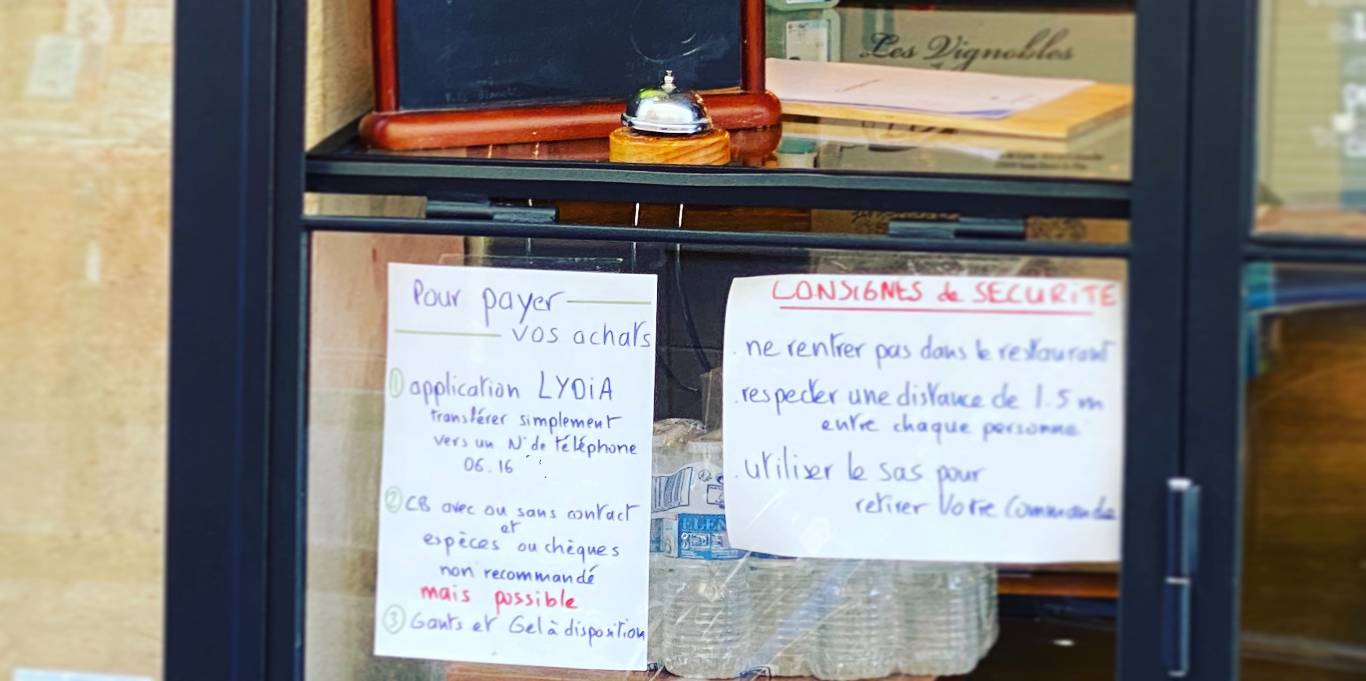 Les Vignobles
Pour payer
vos achats
① application LYDIA
transférer simplement
vers un N° de téléphone
06.16
② CB avec ou sans contact
et
espèces ou chèques
non recommandé
mais possible
③ Gants et Gel à disposition
CONSIGNES de SECURITE
. ne rentrer pas dans le restaurant
. respecter une distance de 1.5 m
entre chaque personne
. utiliser le sas pour
retirer Votre Commande